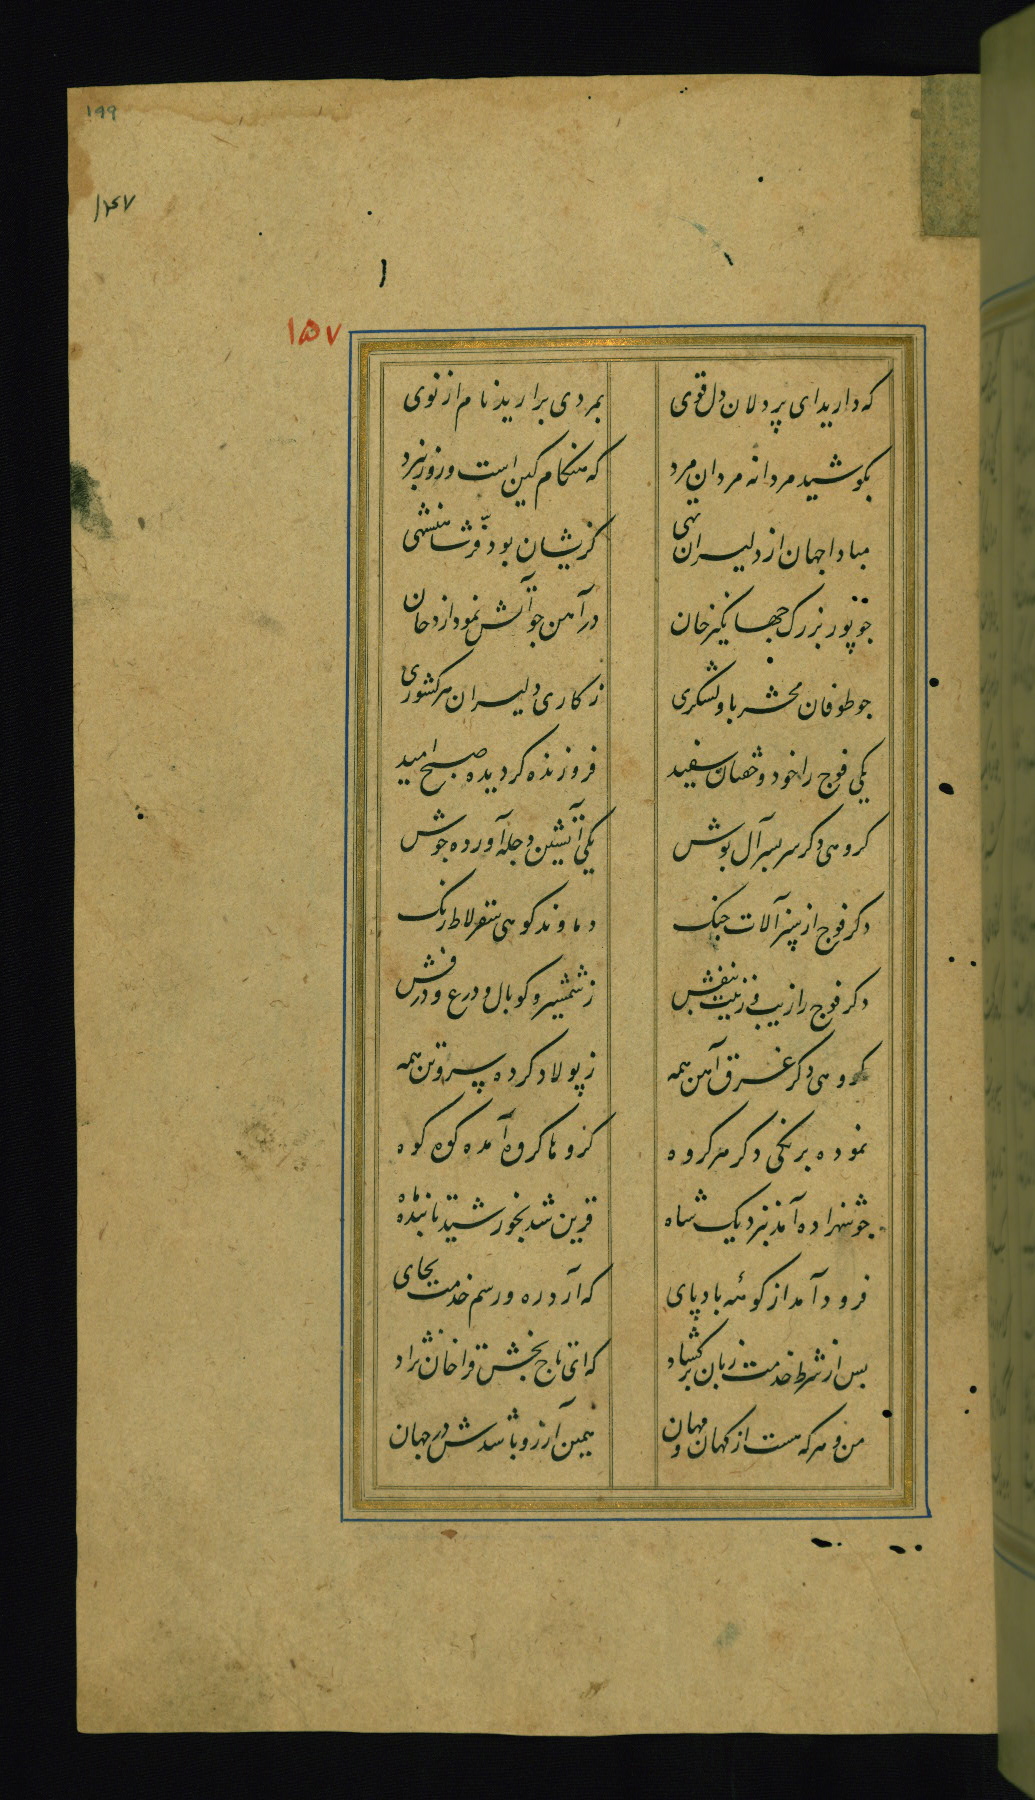 ۱۹۹
۱۴۷
۱۵۷
که دارید ای پردلان دل قوی بمردی برارید نام از نوی
بکوشید مردانه مردان مرد که هنکام کین است و روز نبرد
مبادا جهان از دلیران تهی کزیشان بود فرّ شاهنشهی
جو پور بزرک جهانکیر خان در آهن جو آتش نمود از دخان
جو طوفان محشر با و لشکری ز کاری دلیران هر کشوری
یکی فوج را خود و خفتان سفید فروزنده کردیده صبح امید
کروهی دکر سربسر آل پوش یکی آتشین دجله آورده جوش
دکر فوج از سبز آلات جنک دماوند کوهی سقرلاط رنک
دکر فوج را زیب و زینت بنفش ز شمشیر و کوپال و درع و درفش
کروهی دکر غرق آهن همه ز پولاد کرده سر و تن همه
نموده برنکی دکر هر کروه کروها کروه آمده کوه کوه
جو شهزاده آمد بنزدیک شاه قرین شد بخورشید تابنده ماه
فرود آمد از کوهه بادپای که آرد ره و رسم خدمت بجای
پس از شرط خدمت زبان برکشاد که ای تاج بخش قراخان نژاد
من و هر که هست از کهان و مهان همین آرزو باشدش در جهان